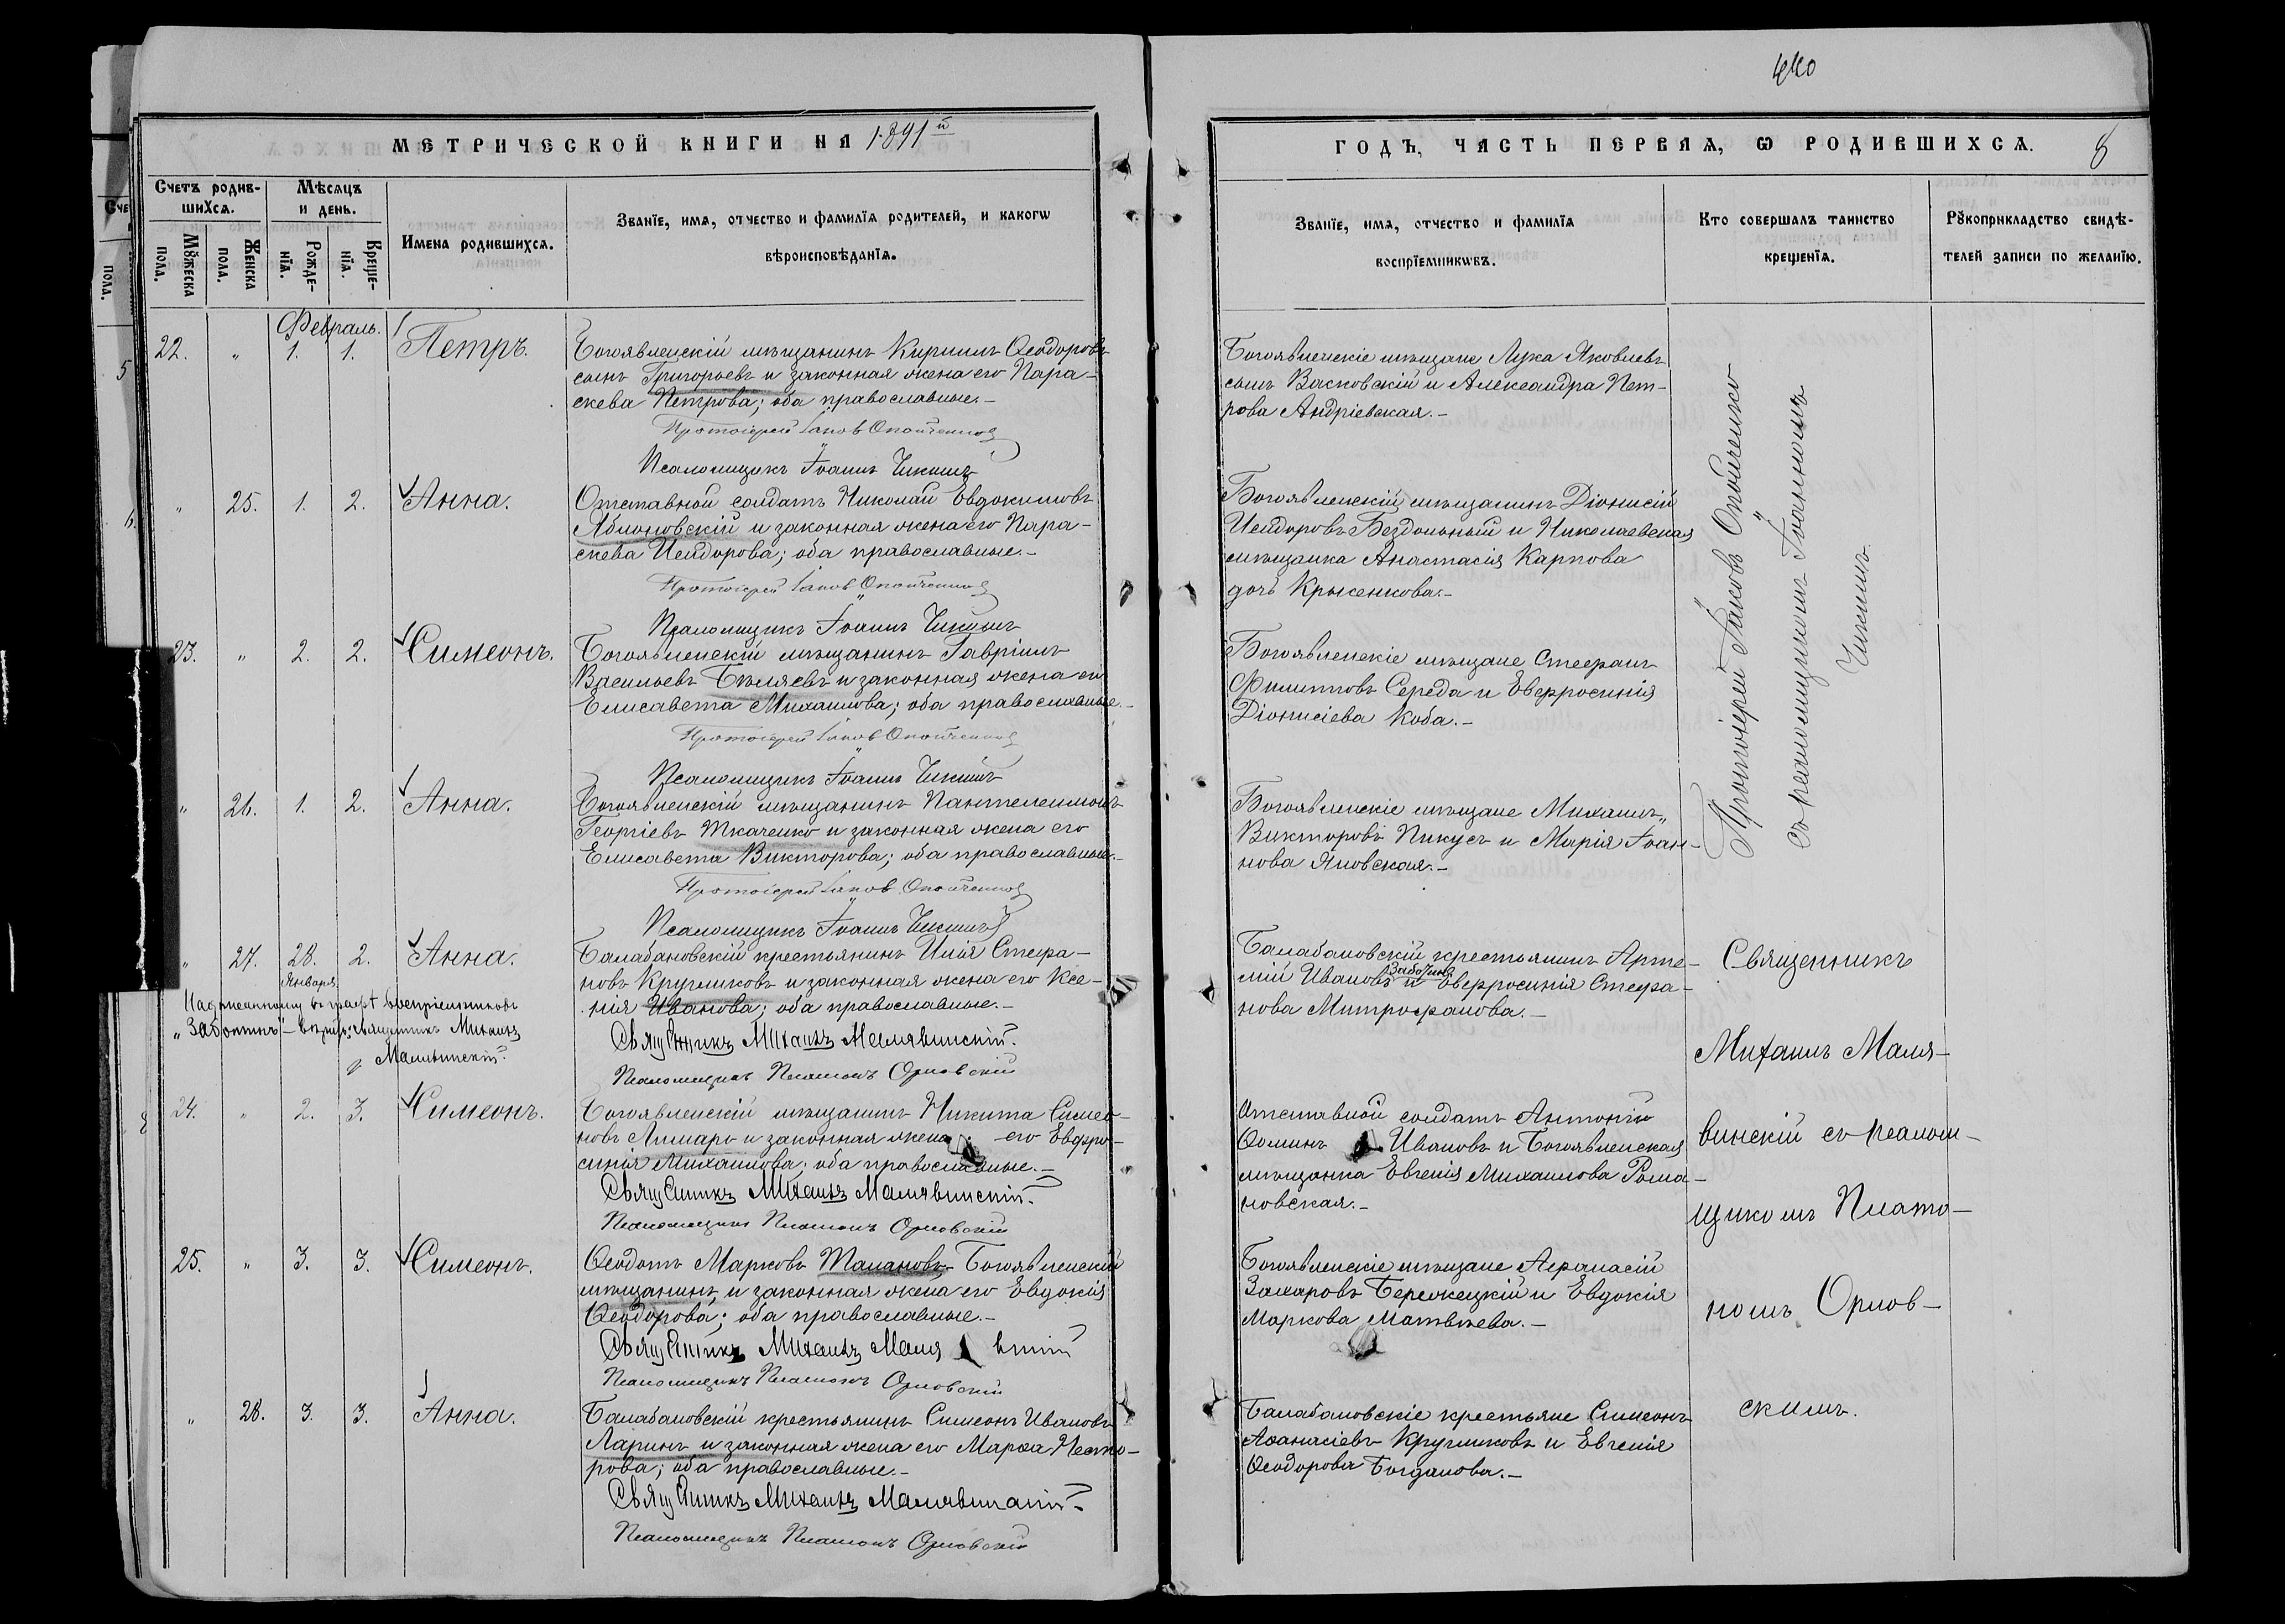 440
МЕТРИЧЕСКОЙ КНИГИ НА 1891й
ГОДЪ, ЧАСТЬ ПЕРВАЯ, Ѡ РОДИВШИХСЯ.
8
Счетъ родив-
шихся.
Мѣсяцъ
и день.
Мꙋжеска
пола.
Женска
пола.
Рожде-
нїя.
Креще-
нїя.
Имена родившихся.
Званїе, имя, отчество и фамилїя родителей, и какогѡ
вѣроисповѣданїя.
Званїе, имя, отчество и фамилїя
воспрїемникѡвъ.
Кто совершалъ таинство
крещенїя.
Рꙋкоприкладство свидѣ-
телей записи по желанїю.
Февраль.
22. " 1. 1. Петръ.
Богоявленскій мѣщанинъ Кириллъ Ѳеодоровъ
сынъ Григорьевъ и законная жена его Пара-
скева Петрова; оба православные.-
Протоіерей Іаковъ Опойченко
Псаломщикъ Іоаннъ Чикинъ
Богоявленскіе мѣщане Лука Яковлевъ
сынъ Васковскій и Александра Пет-
рова Андріевская.-
Протоіерей Іаковъ Опойченко
съ псаломщикомъ Іоанномъ
Чикинъ
" 25. 1. 2. Анна.
Отставной солдатъ Николай Евдокимовъ
Аблоновскій и законная жена его Пара-
скева Исидорова; оба православные.-
Протоіерей Іаковъ Опойченко
Псаломщикъ Іоаннъ Чикинъ
Богоявленскій мѣщанинъ Діонисій
Исидоровъ Бездольный и Николаевская
мѣщанка Анастасія Карпова
дочь Крыженкова.-
23. " 2. 2. Симеонъ.
Богоявленскій мѣщанинъ Гавріилъ
Васильевъ Бѣляевъ и законная жена его
Елисавета Михаилова; оба православные.-
Протоіерей Іаковъ Опойченко
Псаломщикъ Іоаннъ Чикинъ
Богоявленскіе мѣщане Стефанъ
Филипповъ Середа и Евфросинія
Діонисіева Коба.-
" 26. 1. 2. Анна.
Богоявленскій мѣщанинъ Пантелеимонъ
Георгіевъ Ткаченко и законная жена его
Елисавета Викторова; оба православные.-
Протоіерей Іаковъ Опойченко
Псаломщикъ Іоаннъ Чикинъ
Богоявленскіе мѣщане Михаилъ
Викторовъ Пикусъ и Марія Іоан-
нова Яновская.-
" 27. 28. 2. Анна.
Января
Надписанному въ графѣ воспріемниковъ
"Заботинъ" - вѣрить; священникъ Михаилъ
Малявинскій.
Балабановскій крестьянинъ Илія Стефа-
новъ Кругликовъ и законная жена его Ксе-
нія Иванова; оба православные.-
Священникъ Михаилъ Малявинскій.
Псаломщикъ Платонъ Орловскій
Балабановскій крестьянинъ Арте-
мій Ивановъ Заботинъ и Евфросинія Стефа-
нова Митрофанова.-
Священникъ
Михаилъ Маля-
винскій съ псалом-
щикомъ Плато-
номъ Орлов-
скимъ.
24. " 2. 3. Симеонъ.
Богоявленскій мѣщанинъ Никита Симео-
новъ Лимарь и законная жена его Евфро-
синія Михаилова; оба православные.-
Священникъ Михаилъ Малявинскій.
Псаломщикъ Платонъ Орловскій
Отставной солдатъ Антоній
Ѳоминъ Ивановъ и Богоявленская
мѣщанка Евгенія Михаилова Рома-
новская.-
25. " 3. 3. Симеонъ.
Ѳеодотъ Марковъ Талановъ Богоявленскій
мѣщанинъ и законная жена его Евдокія
Ѳеодорова; оба православные.-
Священникъ Михаилъ Маля вскій
Псаломщикъ Платонъ Орловскій
Богоявленскіе мѣщане Аѳанасій
Захаровъ Бережецкій и Евдокія
Маркова Матвѣева.-
" 28. 3. 3. Анна.
Балабановскій крестьянинъ Симеонъ Ивановъ
Ларинъ и законная жена его Марѳа Несто-
рова; оба православные.-
Священникъ Михаилъ Малявинскій.
Псаломщикъ Платонъ Орловскій
Балабановскіе крестьяне Симеонъ
Аѳанасіевъ Кругликовъ и Евгенія
Ѳеодорова Богданова.-